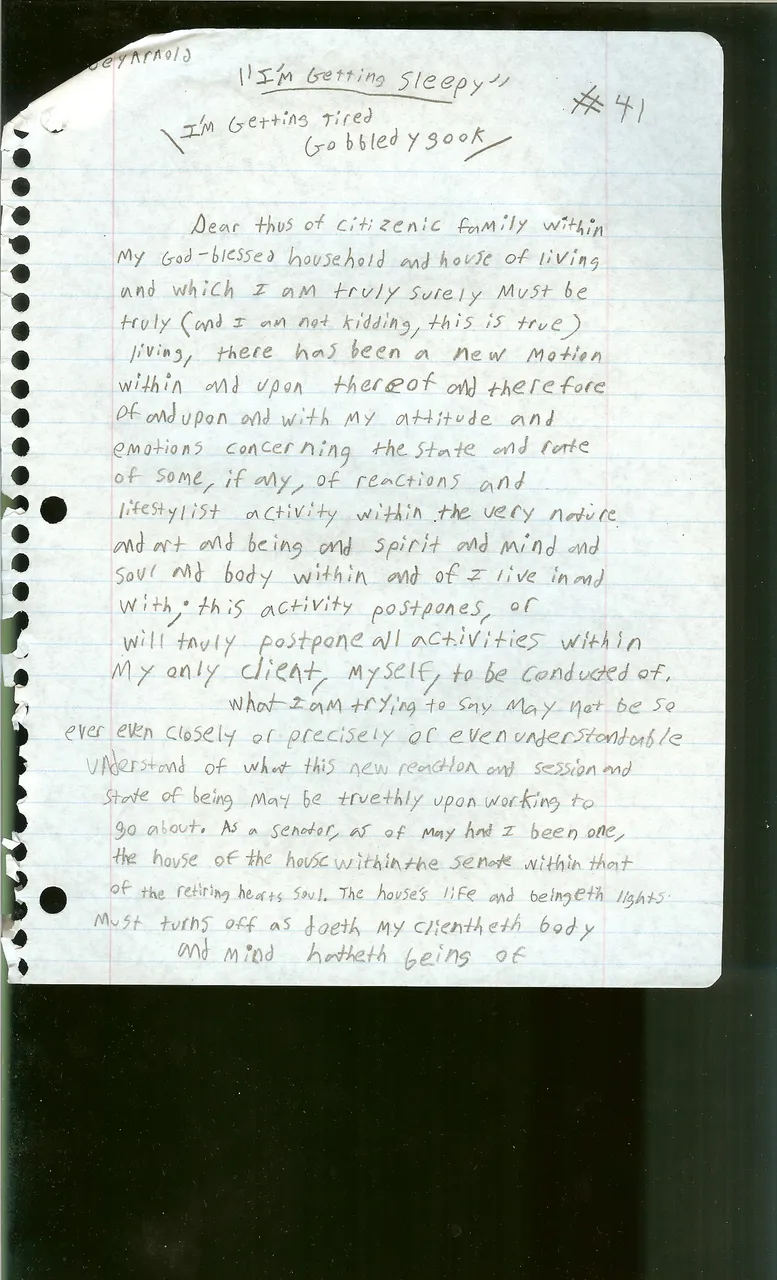 ey Arnold
"I'm Getting Sleepy"
#41
\I'm Getting Tired
Gobbledygook/
Dear thus of citizenic family within
my God-blessed household and house of living
and which I am truly surely must be
truly (and I am not kidding, this is true)
living, there has been a new motion
within and upon thereof and therefore
of and upon and with my attitude and
emotions concerning the state and rate
of some, if any, of reactions and
lifestylist activity within the very nature
and art and being and spirit and mind and
soul and body within and of I live in and
with; this activity postpones, or
will truly postpone all activities within
my only client, myself, to be conducted of.
What I am trying to say may not be so
ever even closely or precisely or even understandable
understand of what this new reaction and session and
state of being may be truethly upon working to
go about. As a senator, as of may had I been one,
the house of the house within the senate within that
of the retiring hearts soul. The house's life and beingeth lights
must turns off as doeth my clientheth body
and mind hatheth being of